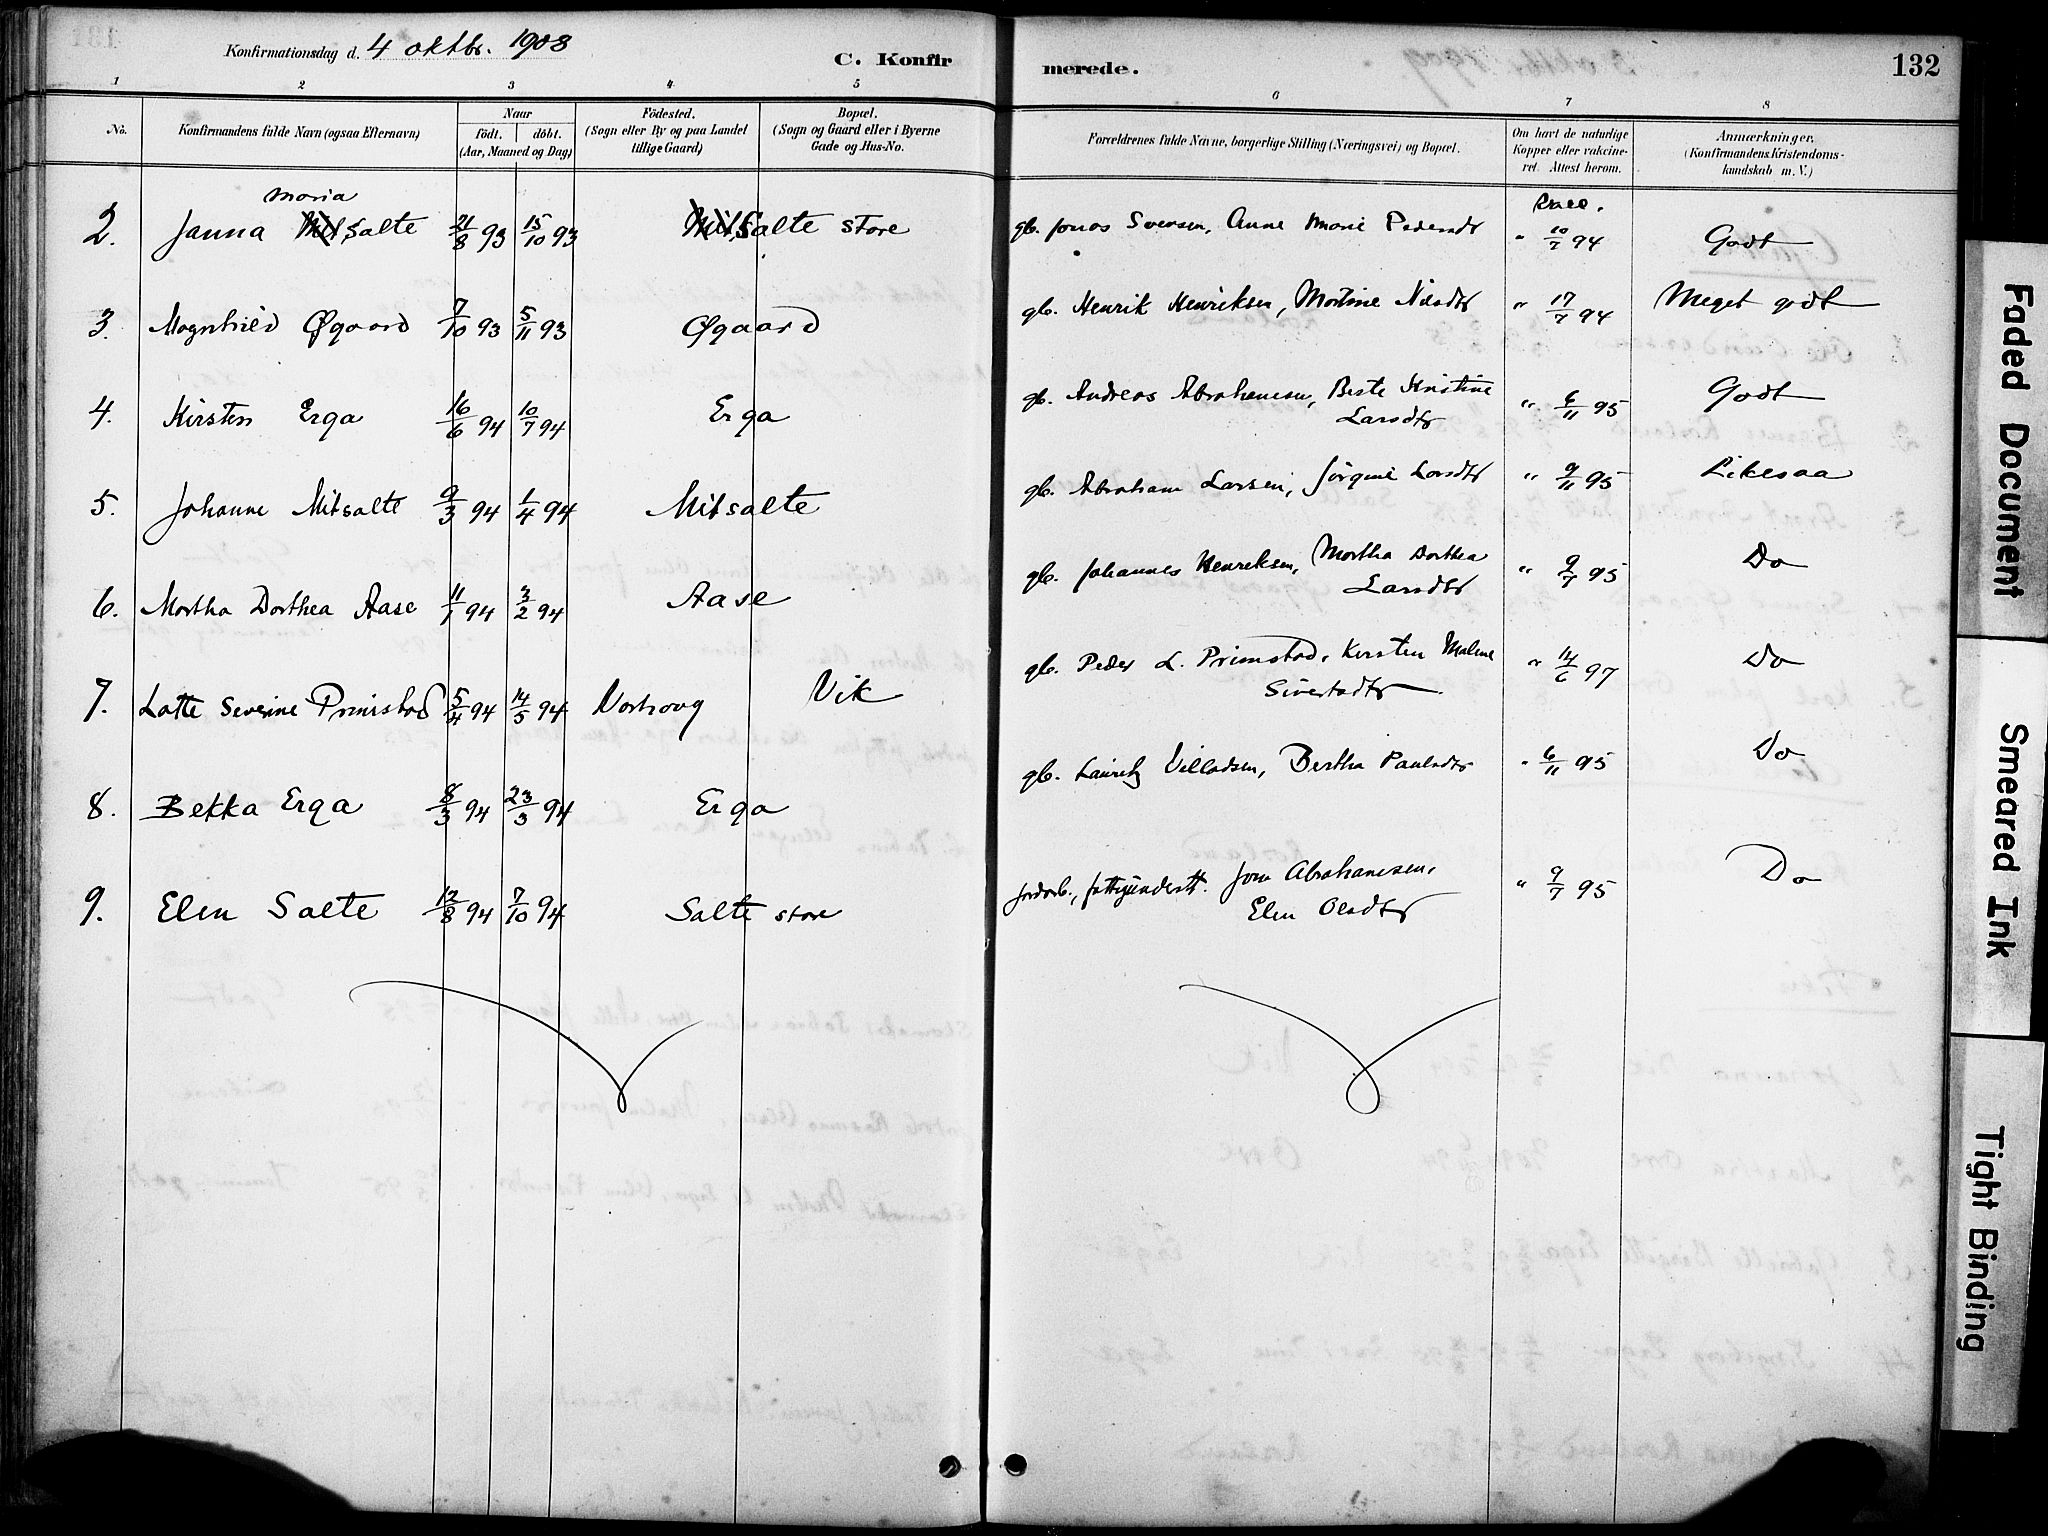 Konfirmationsdag d. 4 oktbr. 1908
C. Konfirmerede.
132
1 2 3 4 5 6 7 8
No. Konfirmandens fulde Navn (ogsaa Efternavn) Naar født. døbt. (Aar, Maaned og Dag) Fødested. (Sogn eller By og paa Landet tillige Gaard) Bopæl. (Sogn og Gaard eller i Byerne Gade og Hus-No. Forældrenes fulde Navne, borgerlige Stilling (Næringsvei) og Bopæl. Om havt de naturlige Kopper eller vakcineret. Attest herom. Anmærkninger, (Konfirmandens Kristendomskundskab m. V.)
Maria
2. Janna Salte 21/8 93 15/10 93 Salte store gb. Jonas Svensen, Anne Marie Pedersdt " 10/7 94 Godt
3. Magnhild Øgaard 7/10 93 5/11 93 Øgaard gb. Henrik Henriksen, Martine Nilsdtr " 17/7 94 Meget godt
4. Kirsten Erga 16/6 94 10/7 94 Erga gb. Andreas Abrahamsen, Berte Kristine Larsdtr " 6/11 95 Godt
5. Johanne Mitsalte 9/3 94 1/4 94 Mitsalte gb. Abraham Larsen, Jørgine Larsdtr " 9/11 95 Likesaa
6. Martha Dorthea Aase 11/1 94 3/2 94 Aase gb. Johannes Henriksen, Martha Dorthea Larsdtr " 9/7 95 Do
7. Lotte Severine Primstad 5/4 94 14/5 94 Varhaug Vik gb. Peder L. Primstad, Kirsten Malene Sivertsdtr " 14/6 97 Do
8. Bekka Erga 8/3 94 23/3 94 Erga gb. Lauritz Villadsen, Bertha Paulsdtr " 6/11 95 Do
9. Elen Salte 12/8 94 7/10 94 Salte store Jon Abrahamsen, Elen Olsdtr " 9/7 95 Do
Faded Document
Smeared Ink
Tight Binding